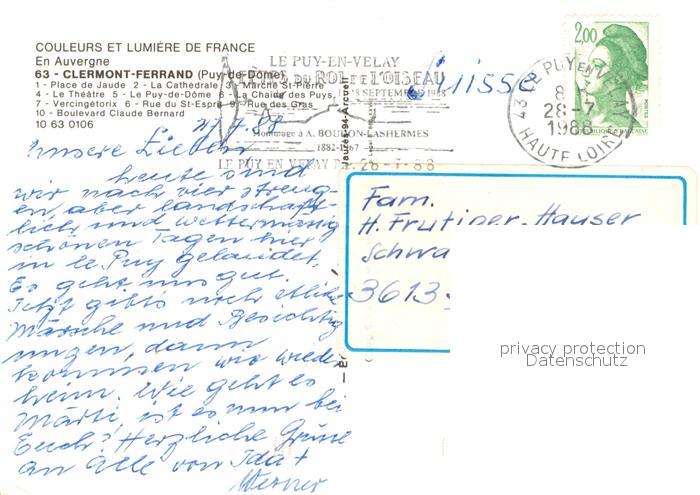 COULEURS ET LUMIÈRE DE FRANCE
En Auvergne
63 - CLERMONT-FERRAND (Puy-de-Dôme)
1 - Place de Jaude 2 - La Cathédrale 3 - Marché St-Pierre
4 - Le Théâtre 5 - Le Puy-de-Dôme La Chaîne des Puys,
7 - Vercingétorix 8 - Rue du St-Esprit 9 - Rue des Gras
10 - Boulevard Claude Bernard
10 63 0106
LE PUY-EN-VELAY
DU ROI DE L'OISEAU
18 SEPTEMBRE 1988
Hommage à A. BOUDON-LASHERMES
1882-1967
LE PUY EN VELAY 28-7-88
Suisse
2,00
43 LE PUY EN VELAY
28-7
1988
HAUTE LOIRE
27.7.88
Unsere Lieben
heute sind
wir nach vier streng-
en, aber landschaft-
lich und wettermässig
schönen Tagen hier
in le Puy gelandet.
Es geht uns gut.
Jetzt gibts noch etliche
Märsche und Besichtig
ungen, dann
kommen wir wieder
heim. Wie geht es
Märti, ist es nun bei
Euch? Herzliche Grüsse
an alle von Ida +
Werner
Fam.
H. Frutiger-Hauser
Schwa
3613
privacy protection
Datenschutz